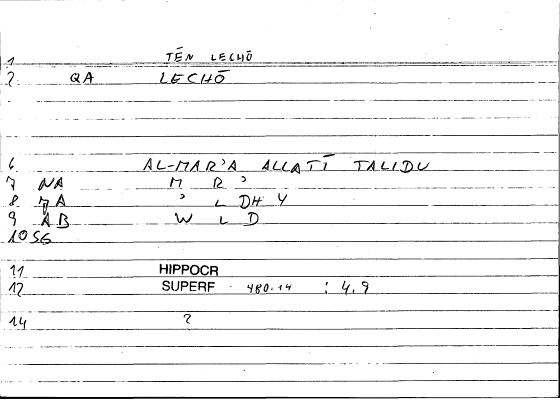 1 TĒN LECHŌ
2 QA LECHŌ
6 AL-MAR'A ALLATĪ TALIDU
7 NA M R '
8 MA ' L DH Y
9 AB W L D
10 SG
11 HIPPOCR
12 SUPERF 480.14 : 4,9
14 ?